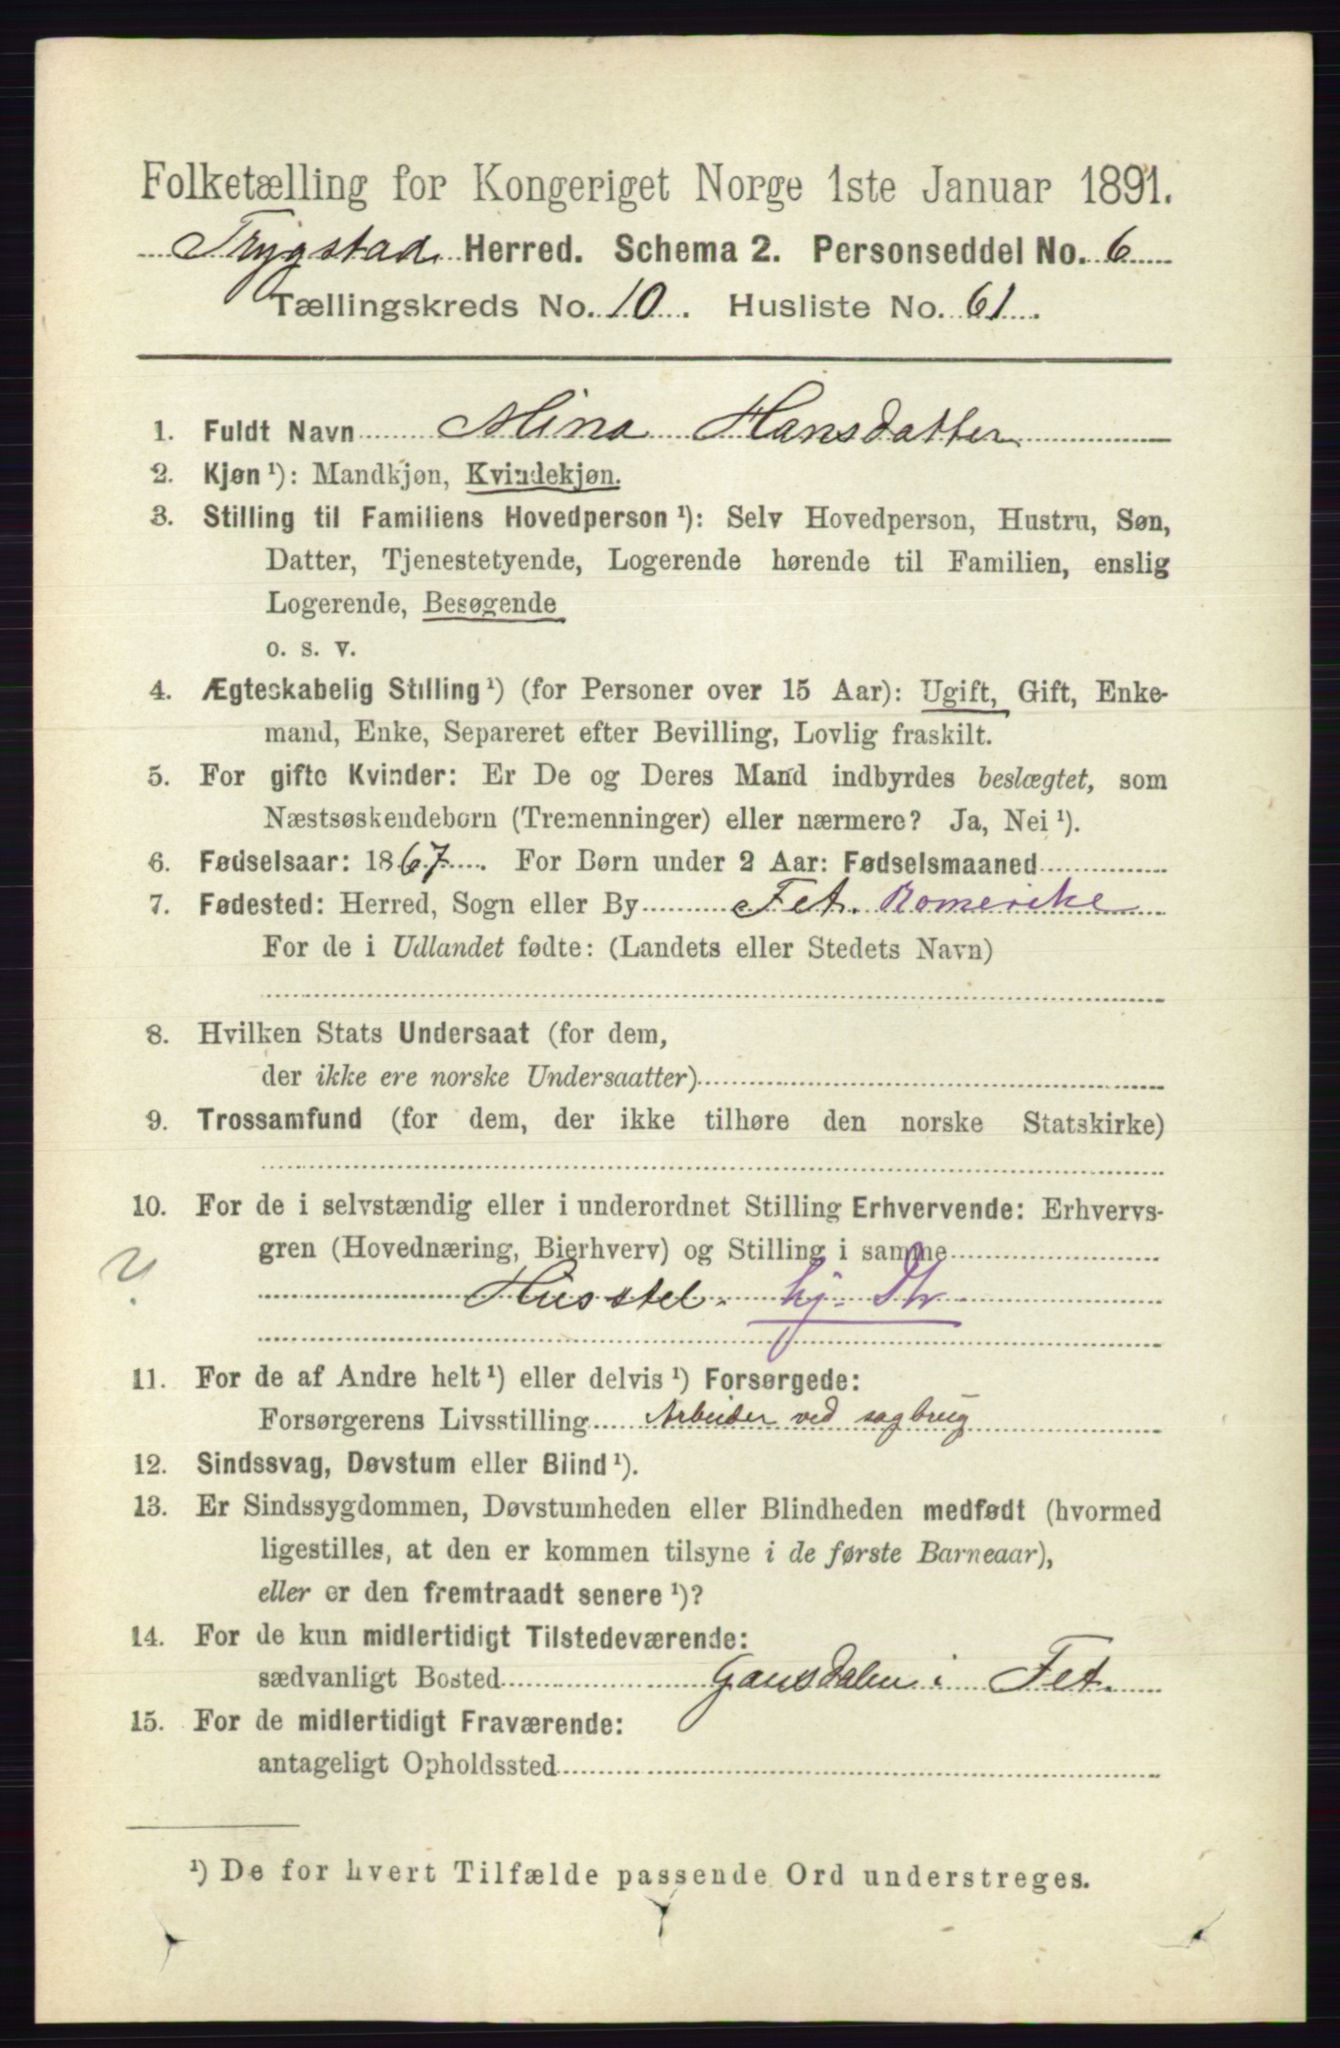 Folketælling for Kongeriget Norge 1ste Januar 1891.
Trygstad Herred. Schema 2. Personseddel No. 6
Tællingskreds No. 10. Husliste No. 61.
1. Fuldt Navn Mina Hansdatter
2. Kjøn ¹): Mandkjøn, Kvindekjøn.
3. Stilling til Familiens Hovedperson ¹): Selv Hovedperson, Hustru, Søn,
Datter, Tjenestetyende, Logerende hørende til Familien, enslig
Logerende, Besøgende
o. s. v.
4. Ægteskabelig Stilling ¹) (for Personer over 15 Aar): Ugift, Gift, Enke-
mand, Enke, Separeret efter Bevilling, Lovlig fraskilt.
5. For gifte Kvinder: Er De og Deres Mand indbyrdes beslægtet, som
Næstsøskendeborn (Tremenninger) eller nærmere? Ja, Nei ¹).
6. Fødselsaar: 1867. For Børn under 2 Aar: Fødselsmaaned
7. Fødested: Herred, Sogn eller By Fet. Romerike
For de i Udlandet fødte: (Landets eller Stedets Navn)
8. Hvilken Stats Undersaat (for dem,
der ikke ere norske Undersaatter)
9. Trossamfund (for dem, der ikke tilhøre den norske Statskirke)
10. For de i selvstændig eller i underordnet Stilling Erhvervende: Erhvervs-
gren (Hovednæring, Bierhverv) og Stilling i samme
? Husstel. hj. Dtr
11. For de af Andre helt ¹) eller delvis ¹) Forsørgede:
Forsørgerens Livsstilling Arbeider ved sagbrug
12. Sindssvag, Døvstum eller Blind ¹).
13. Er Sindssygdommen, Døvstumheden eller Blindheden medfødt (hvormed
ligestilles, at den er kommen tilsyne i de første Barneaar),
eller er den fremtraadt senere ¹)?
14. For de kun midlertidigt Tilstedeværende:
sædvanligt Bosted Gansdalen i Fet.
15. For de midlertidigt Fraværende:
antageligt Opholdssted
¹) De for hvert Tilfælde passende Ord understreges.